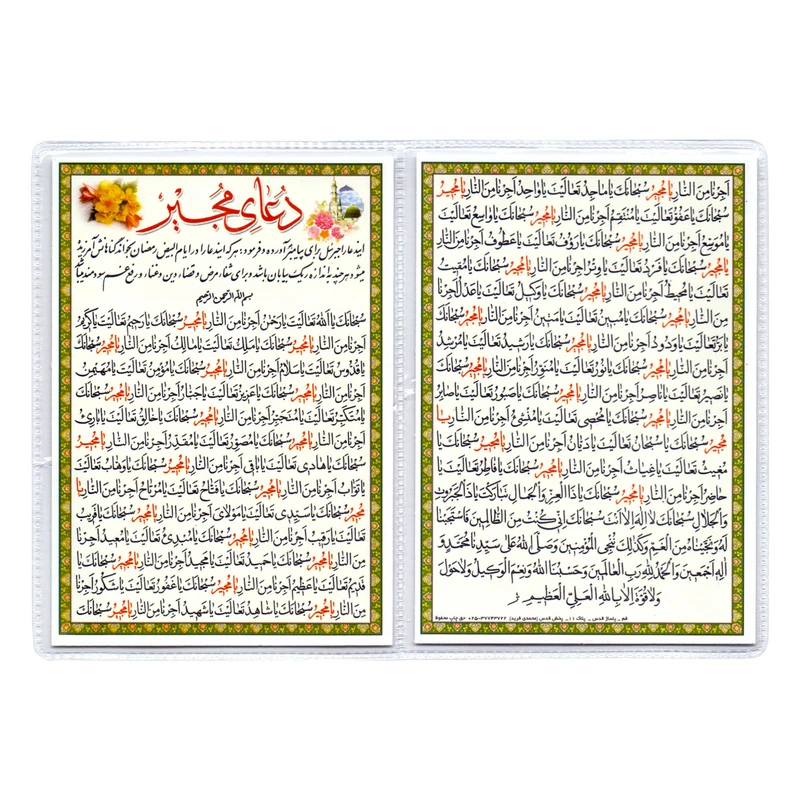 دُعایِ مُجیر
ایندعا را جبرئیل برای پیامبرؐ آورده و فرمود: هرکه ایندعا را در ایام البیض رمضان بخواند گناهانش آمرزیده
میشود هرچند باندازه ریگ بیابان باشد و برای شفاء مرض و قضاء دین و غنا و رفع غم سودمند میباشد
بسم الله الرحمن الرحیم
سُبْحانَكَ یا اَللهُ تَعالَیْتَ یا رَحْمٰنُ اَجِرْنا مِنَ النّارِ یا مُجیرُ سُبْحانَكَ یا رَحیمُ تَعالَیْتَ یا کَریمُ
اَجِرْنا مِنَ النّارِ یا مُجیرُ سُبْحانَكَ یا مَلِكُ تَعالَیْتَ یا مالِكُ اَجِرْنا مِنَ النّارِ یا مُجیرُ سُبْحانَكَ
یا قُدّوسُ تَعالَیْتَ یا سَلامُ اَجِرْنا مِنَ النّارِ یا مُجیرُ سُبْحانَكَ یا مُؤْمِنُ تَعالَیْتَ یا مُهَیْمِنُ
اَجِرْنا مِنَ النّارِ یا مُجیرُ سُبْحانَكَ یا عَزیزُ تَعالَیْتَ یا جَبّارُ اَجِرْنا مِنَ النّارِ یا مُجیرُ سُبْحانَكَ
یا مُتَکَبِّرُ تَعالَیْتَ یا مُتَجَبِّرُ اَجِرْنا مِنَ النّارِ یا مُجیرُ سُبْحانَكَ یا خالِقُ تَعالَیْتَ یا بارِئُ
اَجِرْنا مِنَ النّارِ یا مُجیرُ سُبْحانَكَ یا مُصَوِّرُ تَعالَیْتَ یا مُقَدِّرُ اَجِرْنا مِنَ النّارِ یا مُجیرُ
سُبْحانَكَ یا هادی تَعالَیْتَ یا باقی اَجِرْنا مِنَ النّارِ یا مُجیرُ سُبْحانَكَ یا وَهّابُ تَعالَیْتَ
یا تَوّابُ اَجِرْنا مِنَ النّارِ یا مُجیرُ سُبْحانَكَ یا فَتّاحُ تَعالَیْتَ یا مُرْتاحُ اَجِرْنا مِنَ النّارِ یا
مُجیرُ سُبْحانَكَ یا سَیِّدی تَعالَیْتَ یا مَوْلایَ اَجِرْنا مِنَ النّارِ یا مُجیرُ سُبْحانَكَ یا قَریبُ
تَعالَیْتَ یا رَقیبُ اَجِرْنا مِنَ النّارِ یا مُجیرُ سُبْحانَكَ یا مُبْدِئُ تَعالَیْتَ یا مُعیدُ اَجِرْنا
مِنَ النّارِ یا مُجیرُ سُبْحانَكَ یا حَمیدُ تَعالَیْتَ یا مَجیدُ اَجِرْنا مِنَ النّارِ یا مُجیرُ سُبْحانَكَ یا
قَدیمُ تَعالَیْتَ یا عَظیمُ اَجِرْنا مِنَ النّارِ یا مُجیرُ سُبْحانَكَ یا غَفُورُ تَعالَیْتَ یا شَکُورُ اَجِرْنا
مِنَ النّارِ یا مُجیرُ سُبْحانَكَ یا شاهِدُ تَعالَیْتَ یا شَهیدُ اَجِرْنا مِنَ النّارِ یا مُجیرُ سُبْحانَكَ
اَجِرْنا مِنَ النّارِ یا مُجیرُ سُبْحانَكَ یا ماجِدُ تَعالَیْتَ یا واحِدُ اَجِرْنا مِنَ النّارِ یا مُجیرُ
سُبْحانَكَ یا عَفُوُّ تَعالَیْتَ یا مُنْتَقِمُ اَجِرْنا مِنَ النّارِ یا مُجیرُ سُبْحانَكَ یا واسِعُ تَعالَیْتَ
یا مُوَسِّعُ اَجِرْنا مِنَ النّارِ یا مُجیرُ سُبْحانَكَ یا رَؤُفُ تَعالَیْتَ یا عَطُوفُ اَجِرْنا مِنَ النّارِ
یا مُجیرُ سُبْحانَكَ یا فَرْدُ تَعالَیْتَ یا وِتْرُ اَجِرْنا مِنَ النّارِ یا مُجیرُ سُبْحانَكَ یا مُقیتُ
تَعالَیْتَ یا مُحیطُ اَجِرْنا مِنَ النّارِ یا مُجیرُ سُبْحانَكَ یا وَکیلُ تَعالَیْتَ یا عَدْلُ اَجِرْنا
مِنَ النّارِ یا مُجیرُ سُبْحانَكَ یا مُبینُ تَعالَیْتَ یا مَتینُ اَجِرْنا مِنَ النّارِ یا مُجیرُ سُبْحانَكَ
یا بَرُّ تَعالَیْتَ یا وَدُودُ اَجِرْنا مِنَ النّارِ یا مُجیرُ سُبْحانَكَ یا رَشیدُ تَعالَیْتَ یا مُرْشِدُ
اَجِرْنا مِنَ النّارِ یا مُجیرُ سُبْحانَكَ یا نُورُ تَعالَیْتَ یا مُنَوِّرُ اَجِرْنا مِنَ النّارِ یا مُجیرُ سُبْحانَكَ
یا نَصیرُ تَعالَیْتَ یا ناصِرُ اَجِرْنا مِنَ النّارِ یا مُجیرُ سُبْحانَكَ یا صَبُورُ تَعالَیْتَ یا صابِرُ
اَجِرْنا مِنَ النّارِ یا مُجیرُ سُبْحانَكَ یا مُحْصی تَعالَیْتَ یا مُنْشِئُ اَجِرْنا مِنَ النّارِ یا
مُجیرُ سُبْحانَكَ یا سُبْحانُ تَعالَیْتَ یا دَیّانُ اَجِرْنا مِنَ النّارِ یا مُجیرُ سُبْحانَكَ یا
مُغیثُ تَعالَیْتَ یا غِیاثُ اَجِرْنا مِنَ النّارِ یا مُجیرُ سُبْحانَكَ یا فاطِرُ تَعالَیْتَ یا
حاضِرُ اَجِرْنا مِنَ النّارِ یا مُجیرُ سُبْحانَكَ یا ذَا الْعِزِّ وَالْجَمالِ تَبارَکْتَ یا ذَا الْجَبَرُوتِ
وَالْجَلالِ سُبْحانَكَ لا اِلٰهَ اِلّا اَنْتَ سُبْحانَكَ اِنّی کُنْتُ مِنَ الظّالِمینَ فَاسْتَجَبْنا
لَهُ وَنَجَّیْناهُ مِنَ الْغَمِّ وَکَذٰلِكَ نُنْجِی الْمُؤْمِنینَ وَصَلَّی اللهُ عَلیٰ سَیِّدِنا مُحَمَّدٍ وَ
آلِهِ اَجْمَعینَ وَالْحَمْدُ لِلّٰهِ رَبِّ الْعالَمینَ وَحَسْبُنَا اللهُ وَنِعْمَ الْوَکیلُ وَلا حَوْلَ
وَلا قُوَّةَ اِلّا بِاللهِ الْعَلِیِّ الْعَظیمِ
قم _ پاساژ قدس _ پلاک ۱۱ _ پخش قدس (محمدی فرید) ۳۷۷۴۳۷۲۲-۰۲۵ حق چاپ محفوظ